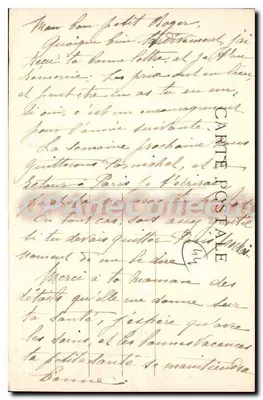 Mon bon petit Roger,
Quoique bien tardivement, j'ai
reçu ta bonne lettre, et je t'en
remercie. Les prix ont eu lieu
et peut être en as tu eu un,
Si oui, c'est un encouragement
pour l'année suivante.
La semaine prochaine nous
quitterons Pornichet, et
retour à Paris je t'écrirai
En tout cas, sois assez
si tu devais quitter
moment de me le dire
Merci à ta maman des
détails qu'elle me donne sur
ta santé, j'espère qu'avec
les soins, et les bonnes vacances
ta petite santé se maintiendra
bonne.
CARTE POSTALE
44